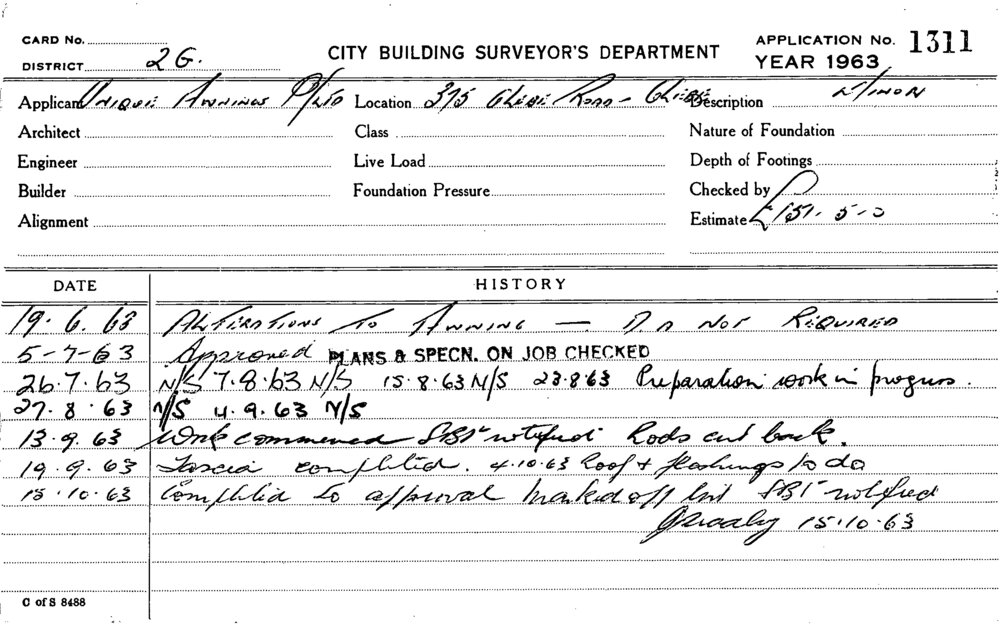 CARD No.
DISTRICT 2G.
CITY BUILDING SURVEYOR'S DEPARTMENT
APPLICATION No. 1311
YEAR 1963
Applicant UNIQUE AWNINGS P/LTD Location 375 GLEBE ROAD - GLEBE Description MINOR
Architect Class Nature of Foundation
Engineer Live Load Depth of Footings
Builder Foundation Pressure Checked by
Alignment Estimate £151-5-0
DATE HISTORY
19.6.63 ALTERATIONS TO AWNING — DA NOT REQUIRED
5-7-63 Approved PLANS & SPECN. ON JOB CHECKED
26.7.63 N/S 7.8.63 N/S 15.8.63 N/S 23.8.63 Preparation work in progress.
27.8.63 N/S 4.9.63 N/S
13.9.63 Work commenced notified Rods cut back.
19.9.63 Fascia completed. 4.10.63 Roof & flashings to do
15.10.63 Completed to approval marked off list notified
15.10.63
C of S 8488